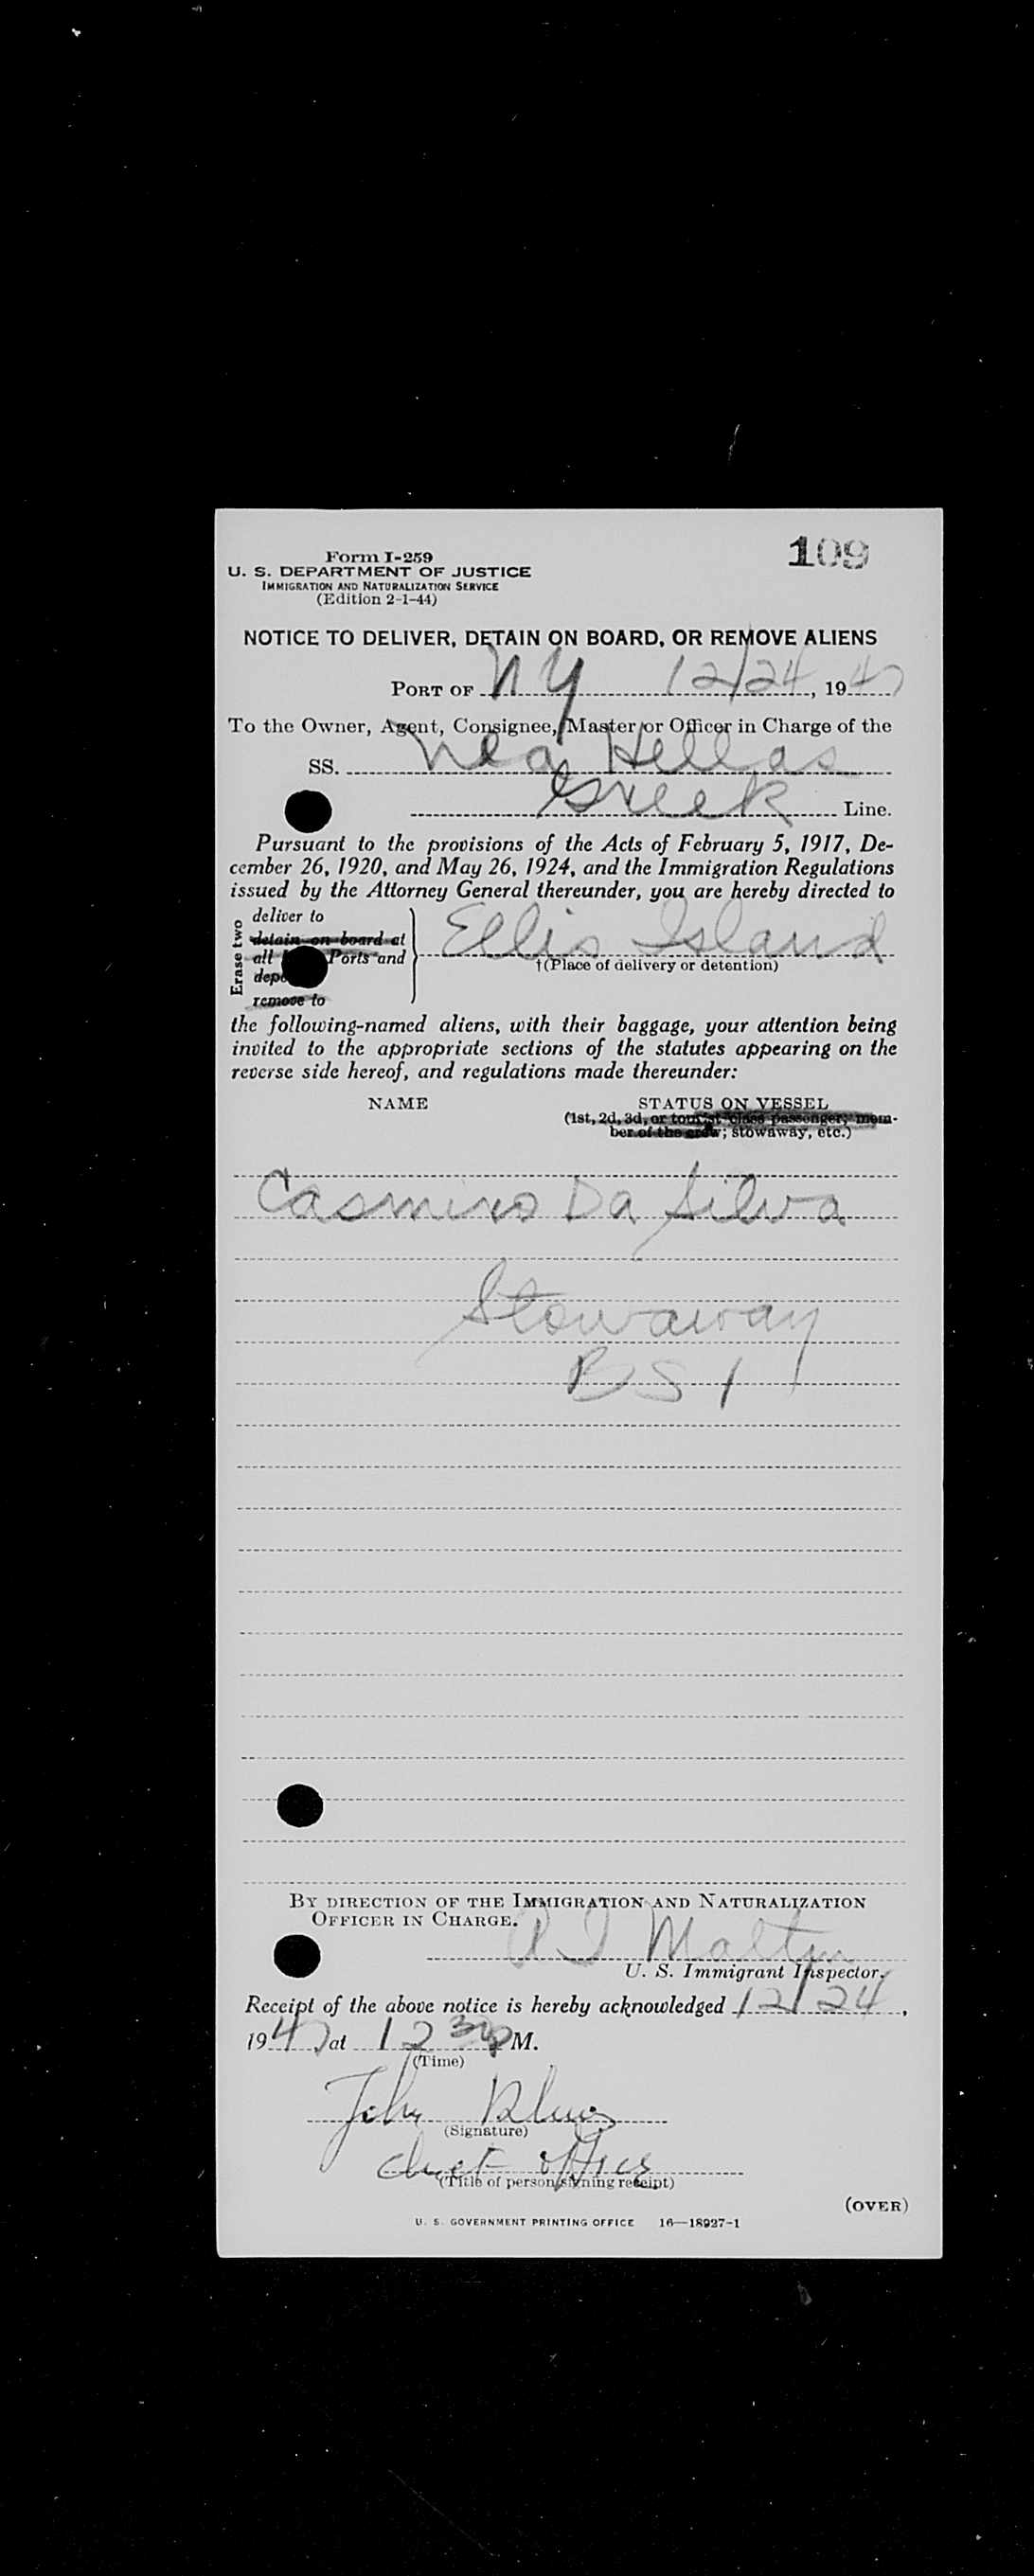 109
Form I-259
U. S. DEPARTMENT OF JUSTICE
IMMIGRATION AND NATURALIZATION SERVICE
(Edition 2-1-44)
NOTICE TO DELIVER, DETAIN ON BOARD, OR REMOVE ALIENS
PORT OF NY 12/24, 1947
To the Owner, Agent, Consignee, Master or Officer in Charge of the
SS. Nea Hellas
Greek Line.
Pursuant to the provisions of the Acts of February 5, 1917, De-
cember 26, 1920, and May 26, 1924, and the Immigration Regulations
issued by the Attorney General thereunder, you are hereby directed to
Erase two
deliver to
detain on board at
all Ports and
remove to
Ellis Island
†(Place of delivery or detention)
the following-named aliens, with their baggage, your attention being
invited to the appropriate sections of the statutes appearing on the
reverse side hereof, and regulations made thereunder:
NAME STATUS ON VESSEL
(1st, 2d, 3d, or tourist class passenger; mem-
ber of the crew; stowaway, etc.)
Casmiro Da Silva
Stowaway
BSI
BY DIRECTION OF THE IMMIGRATION AND NATURALIZATION
OFFICER IN CHARGE.
U. S. Immigrant Inspector.
Receipt of the above notice is hereby acknowledged 12/24,
1947 at 12 30 P M.
(Time)
John
(Signature)
(Title of person signing receipt)
(OVER)
U. S. GOVERNMENT PRINTING OFFICE 16—18927-1